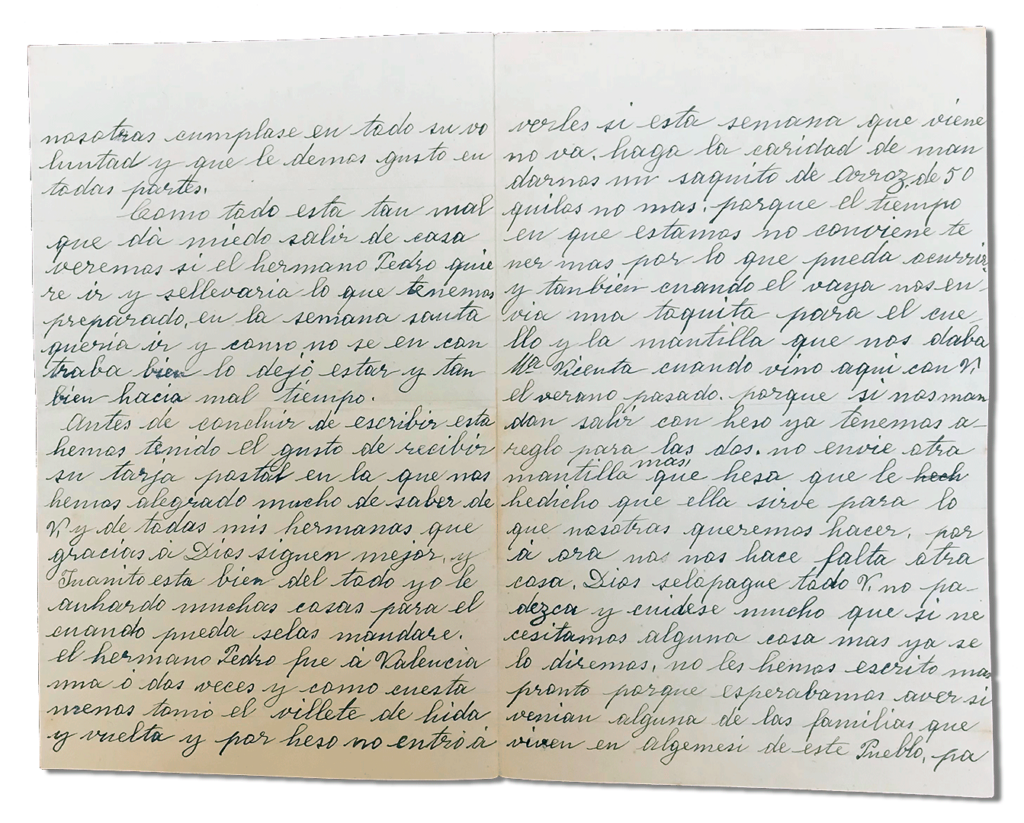 nosotras cumplase en todo su vo
luntad y que le demos gusto en
todas partes.
Como todo esta tan mal
que dá miedo salir de casa
veremos si el hermano Pedro quie
re ir y sellevaria lo que tenemos
preparado, en la semana santa
queria ir y como no se en con
traba bien lo dejó estar y tan
bien hacia mal tiempo.
Antes de concluir de escribir esta
hemos tenido el gusto de recibir
su tarja postal en la que nos
hemos alegrado mucho de saber de
V. y de todas mis hermanas que
gracias á Dios siguen mejor, y
Juanito esta bien del todo yo le
anhardo muchas cosas para el
cuando pueda selas mandare.
el hermano Pedro fue á Valencia
una ó dos veces y como cuesta
menos tomó el villete de hida
y vuelta y por heso no entró á
verles si esta semana que viene
no va. haga la caridad de man
darnos un saquito de Arroz de 50
quilos no mas. porque el tiempo
en que estamos no conviene te
ner mas por lo que pueda ocurrir,
y tanbien cuando el vaya nos en-
via una toquita para el cue_
llo y la mantilla que nos daba
Mª Vicenta cuando vino aqui con V.
el verano pasado. porque si nos man
dan salir con heso ya tenemos a-
reglo para las dos. no envie otra
mantilla mas, que hesa que le hech
hedicho que ella sirve para lo
que nosotras queremos hacer, por
á ora nos nos hace falta otra
cosa. Dios selopague todo V. no pa-
dezca y cuidese mucho que si ne
cesitamos alguna cosa mas ya se
lo diremos, no les hemos escrito mas
pronto porque esperabamos aver si
venian alguna de las familias que
viven en Algemesi de este Pueblo, pa